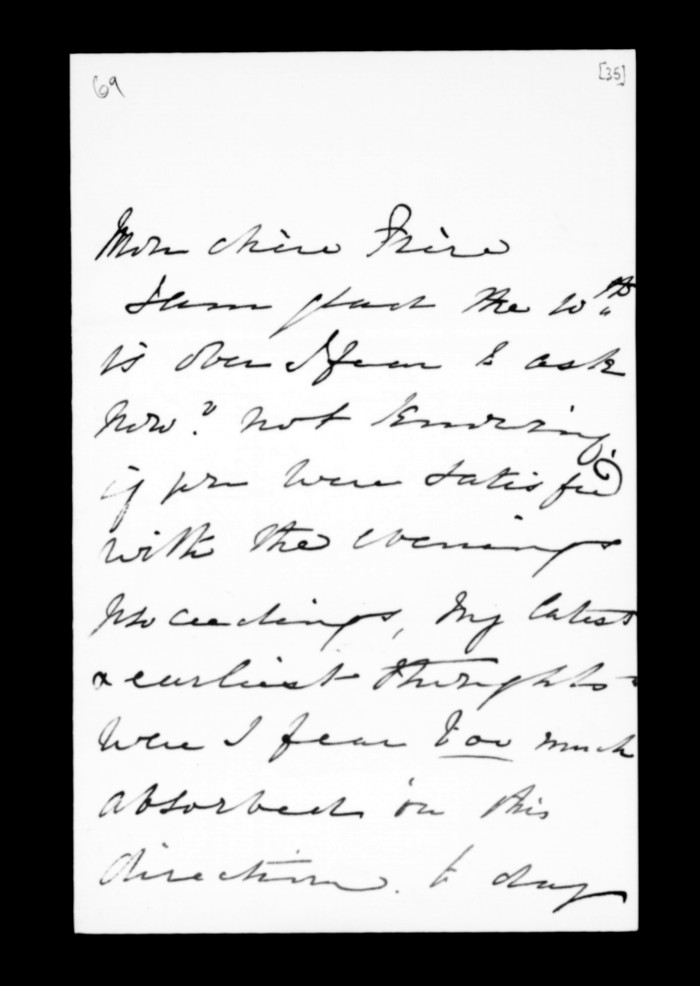 69 [35]
Mon chère Frère
I am glad the 10th
is over I fear to ask
how? not knowing
if you were satisfied
with the evenings
proceedings, My latest
& earliest thoughts
were I fear too much
absorbed in this
direction. to day